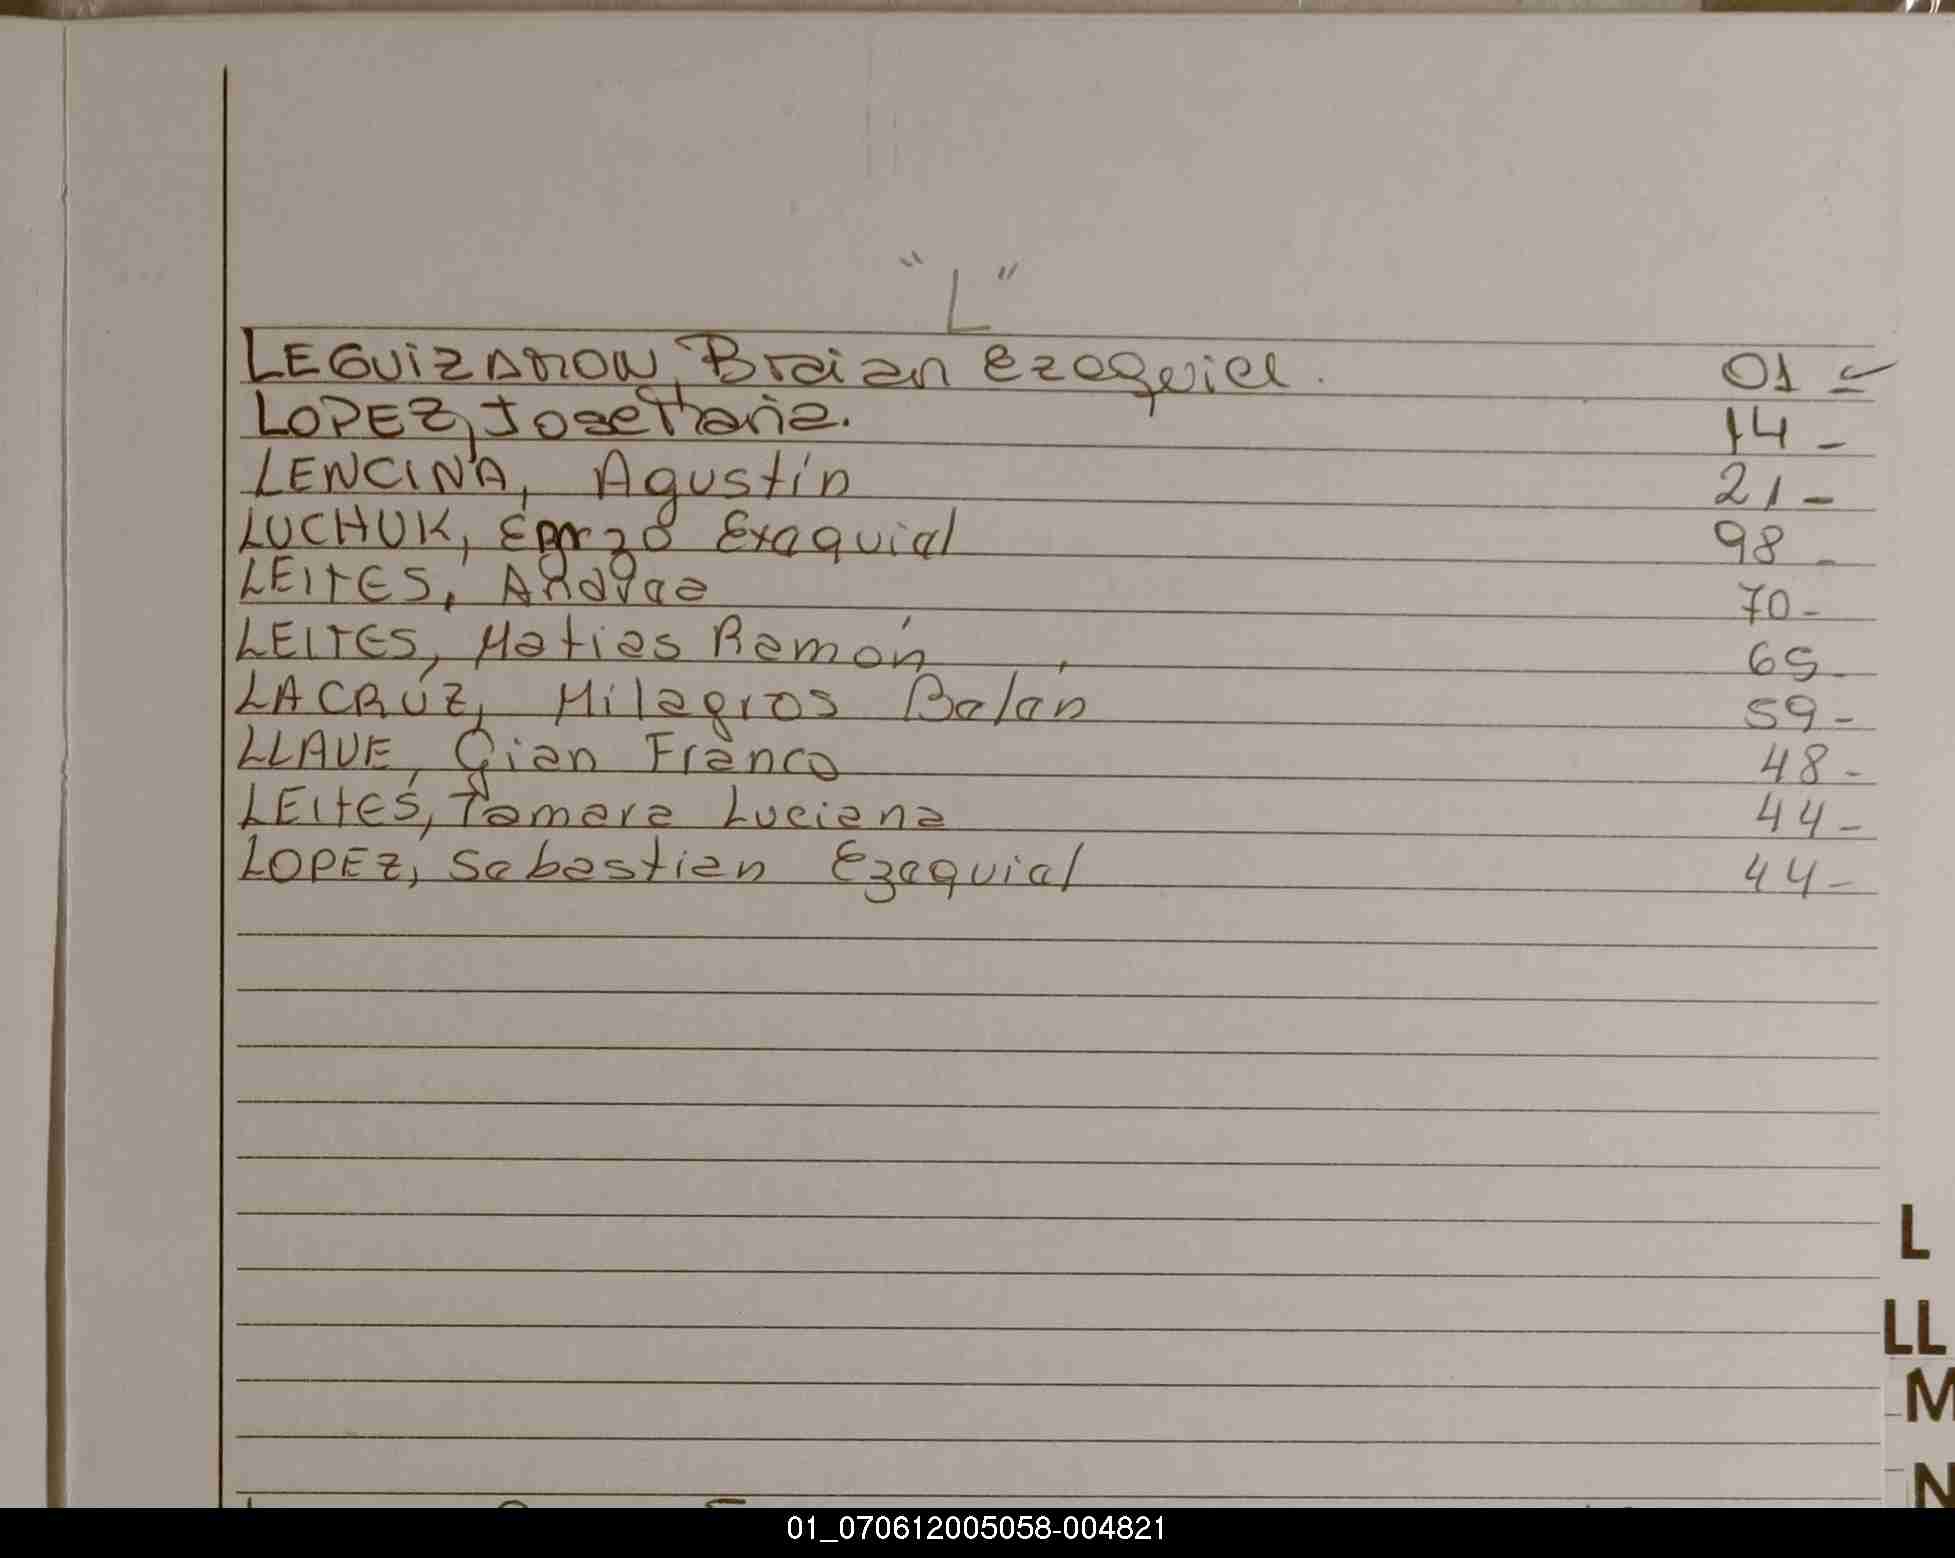 "L"
LEGUIZAMON, Braian Ezequiel. 01
LOPEZ, Jose Maria. 14 -
LENCINA, Agustín 21 -
LUCHUK, Exequiel 98 -
LEITES, Andrea 70 -
LEITES, Matias Ramón 65 -
LA CRUZ, Milagros Belén 59 -
LLAVE, Gian Franco 48 -
LEITES, Tamara Luciana 44 -
LOPEZ, Sebastian Ezequiel 44 -
L
LL
M
N
01_070612005058-004821